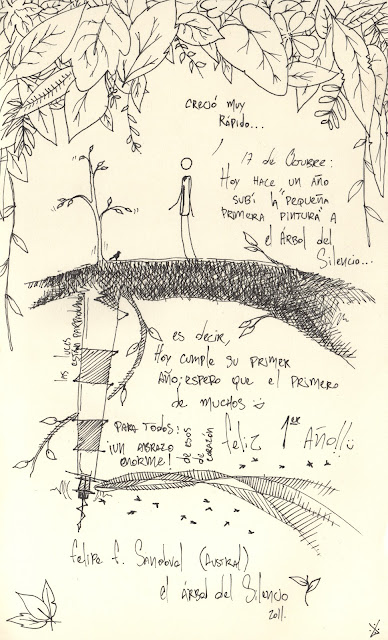 CRECIÓ MUY
RÁPIDO...
17 de Octubre:
HOY HACE UN AÑO
SUBÍ LA "PEQUEÑA
PRIMERA PINTURA" A
el ÁRBOL del
Silencio...
las luces
están parpadeando
es decir,
Hoy cumple su primer
AÑO; espero que el primero
de muchos
PARA TODOS:
¡UN ABRAZO
ENORME!
de esos
de corazón
feliz 1er AÑO!!
felipe f. Sandoval (Austral)
el ÁRBOL del Silencio
2011.